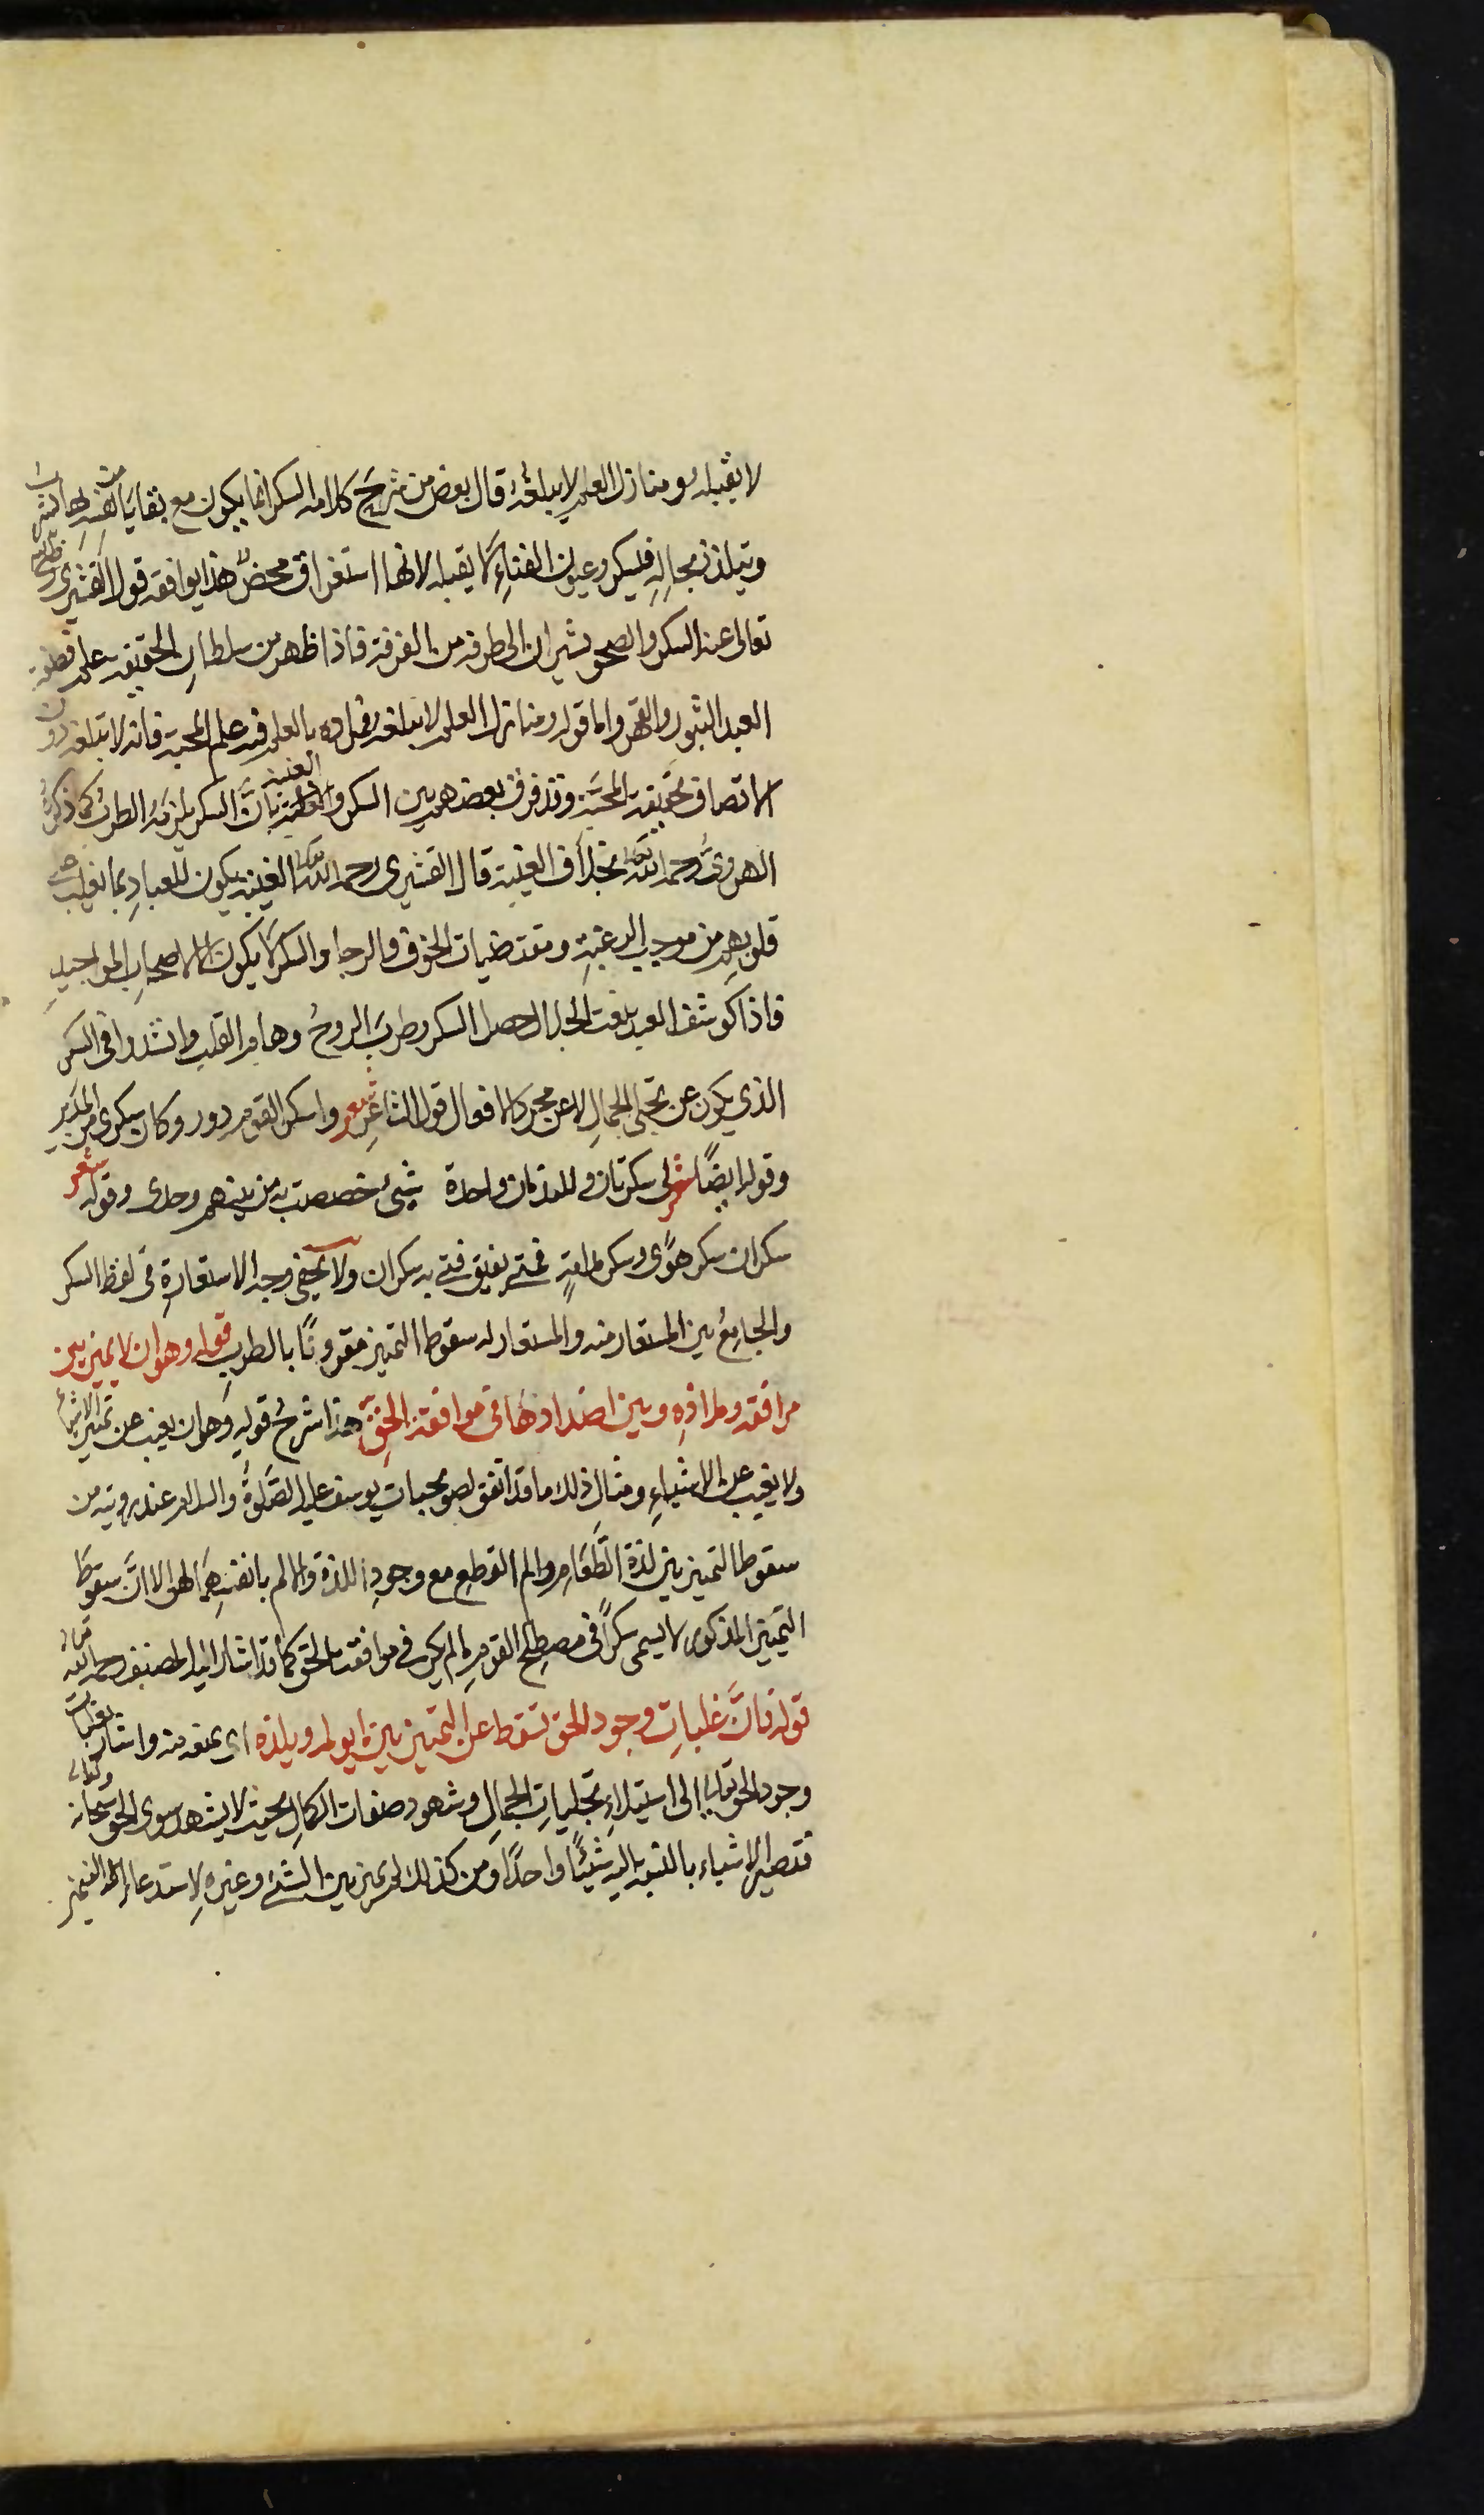 لا يقبله ومنازل العلم لا يبلغه قال بعض من شرح كلامه السكر انما يكون مع بقايا
ويتلذذ بجماله فيسكر وعيون الفناء لا يقبله لانها استغراق محض هذا يوافقه قول القشيري رحمه الله
تعالى عند السكر والصحو يشيران الى طرف من التفرقة فاذا ظهر من سلطان الحقيقة علم فصفة
العبد الثبور والقهر واما قوله ومنازل العلم لا يبلغه فمراده بالعلم فيه علم المحبة فانه لا تبلغه دون
الاتصاف بحقيقة المحبة وقد فرق بعضهم بين السكر والغيبة بان السكر يلزمه الطرب كما ذكره
الهروي رحمه الله تعالى بخلاف الغيبة قال القشيري رحمه الله تعالى الغيبة يكون للعباد بما يغلب على
قلوبهم من موجب الرغبة ومقتضيات الخوف والرجا والسكر لا يكون الا لاصحاب المواجيد
فاذا كوشف العبد بنعت الجمال حصل السكر وطرب الروح وهام القلب وانشدوا في السكر
الذي يكون عن تجلي الجمال لا عن مجرد الافعال قول الشاعر شعر واسكر القوم دور وكان سكري من المدير
وقوله ايضًا شعر لي سكرتان وللندمان واحدة شيئ خصصت به من بينهم وحدى وقوله شعر
سكران سكر هوًى وسكر مدامةٍ فمتى يفيق فتى به سكران ولا يخفى وجه الاستعارة في لفظ السكر
والجامع بين المستعار منه والمستعار له سقوط التميز مقرونًا بالطرب قوله وهو ان لا يميز بين
مرافقه وملاذه وبين اضدادها في موافقة الحق هذا شرح قوله وهو ان يغيب عن تميز الاشياء
ولا يغيب عن الاشياء ومثال ذلك ما قد اتفق لصويحبات يوسف عليه الصلوة والسلام عند رويته من
سقوط التميز بين لذة الطعام والم القطع مع وجود اللذة والالم بانفسهما لهن الا ان سقوط
التميز المذكور لا يسمى سكرًا في مصطلح القوم ما لم يكن في موافقة الحق كما قد اشار اليه المصنف رحمه الله
قوله فان غلبات وجود الحق تسقط عن التميز بين ما يولمه ويلذه اى يمنعه منه واشار بغلبات
وجود الحق تعالى الى استيلاء تجليات الجمال وشهود صفات الكمال بحيث لا يشهد سوى الحق سبحانه وتعالى
فتصير الاشياء بالنسبة اليه شيئًا واحدًا ومن كذلك لم يميز بين الشئ وغيره لاستدعاء التميز